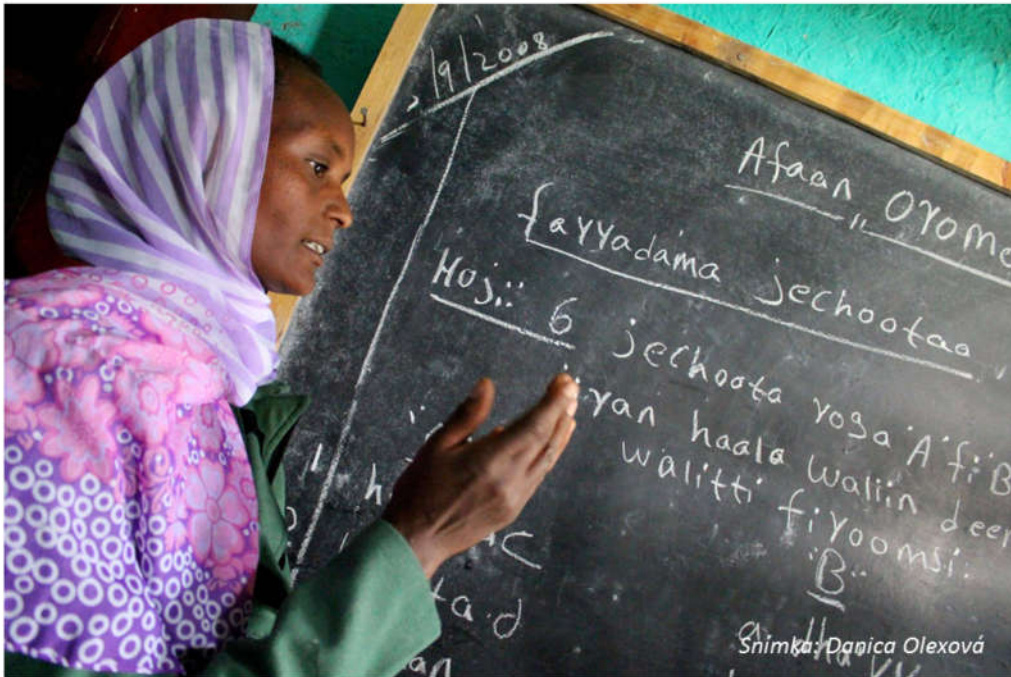 /9/2008
Afaan Orome
fayyadama jechootaa
Hojii 6 jechoota roga "A" fi "B"
irran haala waliin deem
walitti firoomsi:
"B"
ta.d
Snímka: Danica Olexová